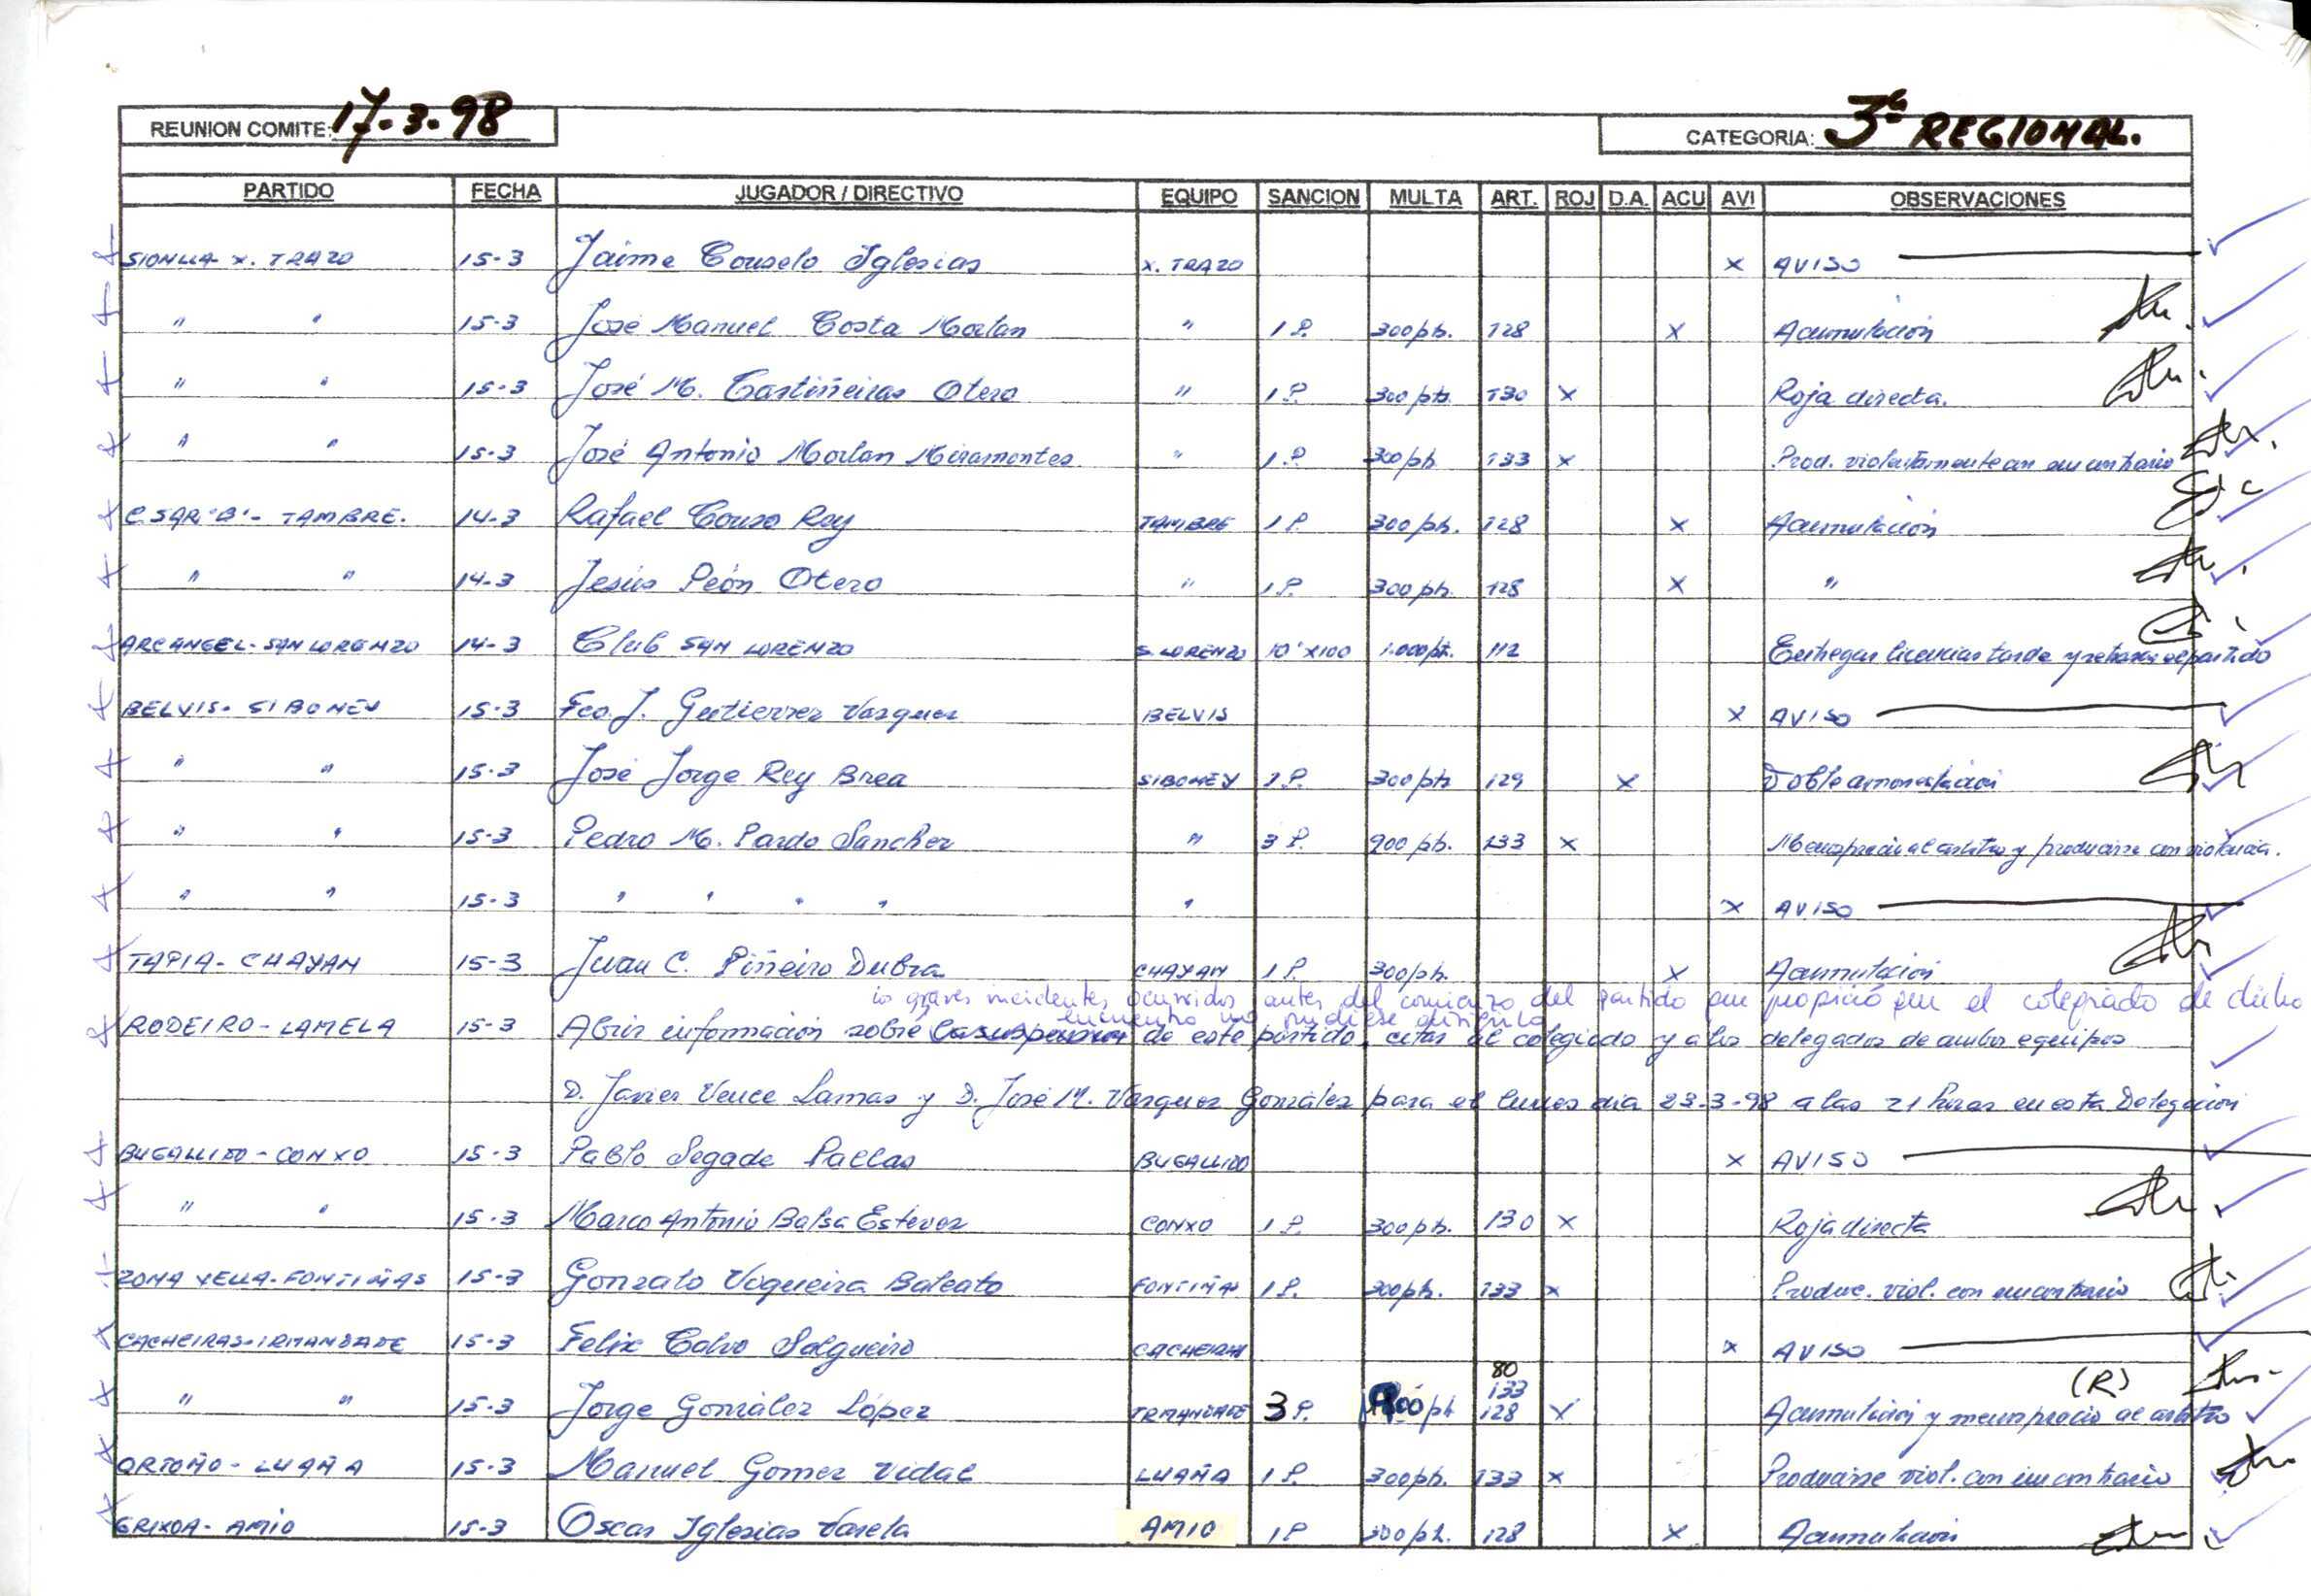 REUNION COMITE: 17-3-98 CATEGORIA: 3ª REGIONAL.
PARTIDO FECHA JUGADOR / DIRECTIVO EQUIPO SANCION MULTA ART. ROJ D.A. ACU AVI OBSERVACIONES
SIONLLA X. TRAZO 15-3 Jaime Couselo Iglesias X. TRAZO X AVISO
" " 15-3 José Manuel Costa Morlan " 1 P. 300 pts. 128 X Acumulación
" " 15-3 José M. Castiñeiras Otero " 1 P. 300 pts. 130 X Roja directa.
" " 15-3 José Antonio Morlan Miramontes " 1 P 300 pts 133 X Prod. violentamente con un contrario
C. SAR "B" - TAMBRE. 14-3 Rafael Couso Rey TAMBRE 1 P. 300 pts. 128 X Acumulación
" " 14-3 Jesús Peón Otero " 1 P. 300 pts. 128 X "
ARCANGEL - SAN LORENZO 14-3 Club SAN LORENZO S. LORENZO 10'X100 1.000 pts. 112 Entregar licencias tarde y retrasar el partido
BELVIS - SIBONEY 15-3 Fco. J. Gutierrez Vazquez BELVIS X AVISO
" " 15-3 José Jorge Rey Brea SIBONEY 1 P. 300 pts 129 X Doble amonestación
" " 15-3 Pedro M. Pardo Sanchez " 3 P. 900 pts. 133 X Menosprecio al arbitro y producirse con violencia.
" " 15-3 " " " " " X AVISO
TAPIA - CHAYAN 15-3 Juan C. Piñeiro Dubra CHAYAN 1 P. 300 pts. X Acumulación
los graves incidentes ocurridos antes del comienzo del partido que propició que el colegiado de dicho
encuentro no pudiese dirigirlo
RODEIRO - LAMELA 15-3 Abrir información sobre la suspension de este partido, citar al colegiado y a los delegados de ambos equipos
D. Javier Vence Lamas y D. José M. Vazquez González para el lunes dia 23-3-98 a las 21 horas en esta Delegación
BUGALLIDO - CONXO 15-3 Pablo Segade Pallas BUGALLIDO X AVISO
" " 15-3 Marco Antonio Balsa Estevez CONXO 1 P. 300 pts. 130 X Roja directa
ZONA VELLA - FONTIÑAS 15-3 Gonzalo Nogueira Baleato FONTIÑAS 1 P. 300 pts. 133 X Produc. viol. con un contrario
CACHEIRAS - IRMANDADE 15-3 Felix Calvo Salgueiro CACHEIRAS X AVISO
80
133 (R)
" " 15-3 Jorge González López IRMANDADE 3 P. 900 pts 128 X Acumulación y menosprecio al arbitro
ORTOÑO - LUAÑA 15-3 Manuel Gomez Vidal LUAÑA 1 P. 300 pts. 133 X Producirse viol. con un contrario
GRIXOA - AMIO 15-3 Oscar Iglesias Varela AMIO 1 P 300 pts. 128 X Acumulación